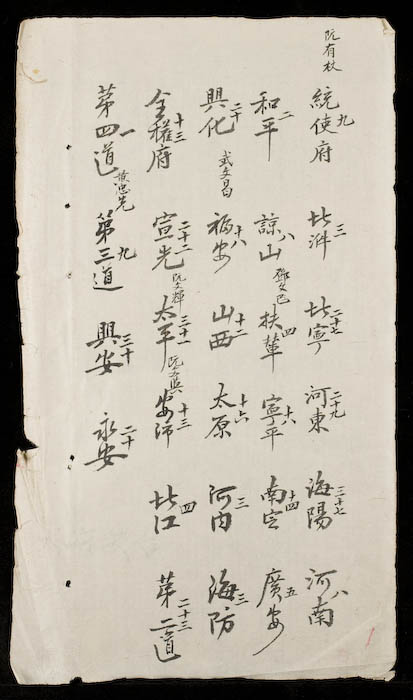 阮有杖 統使府九 北𣴓三 北寧二十七 河東二十九 海陽三十七 河南八
和平二 諒山八 鄧文 扶輦四 寧平十六 南定十四 廣安五
興化二十 武文昌 福安十八 山西十二 太原十六 河内三 海防三
全權府十三 宣光二十二 阮文輝 太平三十一 阮文 安沛十三 北江四 第二道二十三
第四道一 黄忠光 第三道九 興安三十 永安二十